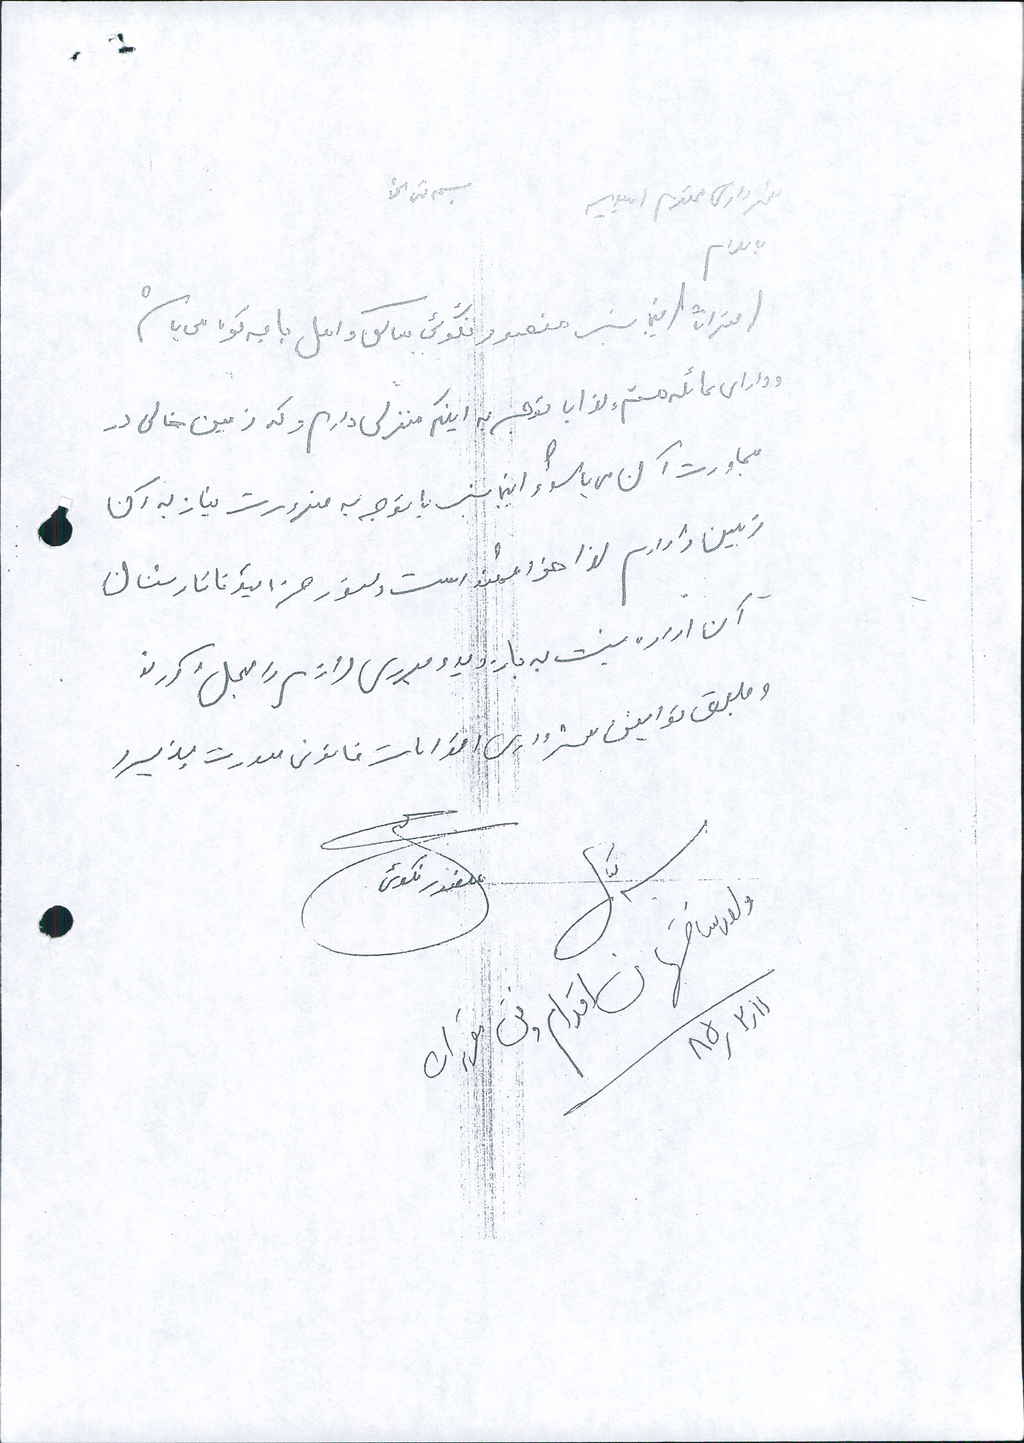 بسمه تعالی
شهرداری محترم امیدیه
با سلام
احتراماً اینجانب منصور نکوئی ساکن و اهل با می باشم
و دارای عائله هستم و لذا با توجه به اینکه منزلی دارم و که زمین خالی در
مجاورت آن می باشد و اینجانب با توجه به ضرورت نیاز به آن
زمین را دارم لذا خواهشمند است دستور فرمائید تا کارشناسان
آن اداره نسبت به بازدید و بررسی لازم را معمول آورند
و طبق قوانین شهرداری اقدامات قانونی صورت پذیرد
منصور نکوئی
واحد ساختمان
اقدام وفق مقررات
۸۵/۲/۱۱